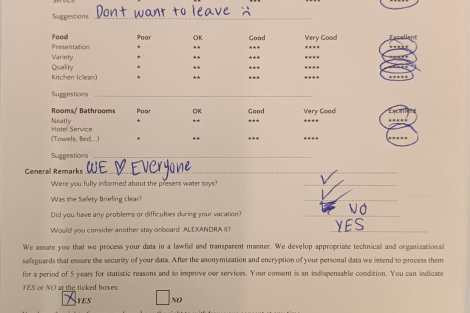 Service
Suggestions Dont want to leave :(
Food Poor OK Good Very Good Excellent
Presentation * ** *** **** *****
Variety * ** *** **** *****
Quality * ** *** **** *****
Kitchen (clean) * ** *** **** *****
Suggestions
Rooms/ Bathrooms Poor OK Good Very Good Excellent
Neatly * ** *** **** *****
Hotel Service
(Towels, Bed,...) * ** *** **** *****
Suggestions
General Remarks WE ♡ EVERyone
Were you fully informed about the present water toys? ✓
Was the Safety Briefing clear? ✓
Did you have any problems or difficulties during your vacation? NO
Would you consider another stay onboard ALEXANDRA II? YES
We assure you that we process your data in a lawful and transparent manner. We develop appropriate technical and organizational
safeguards that ensure the security of your data. After the anonymization and encryption of your personal data we intend to process them
for a period of 5 years for statistic reasons and to improve our services. Your consent is an indispensable condition. You can indicate
YES or NO at the ticked boxes:
X YES NO